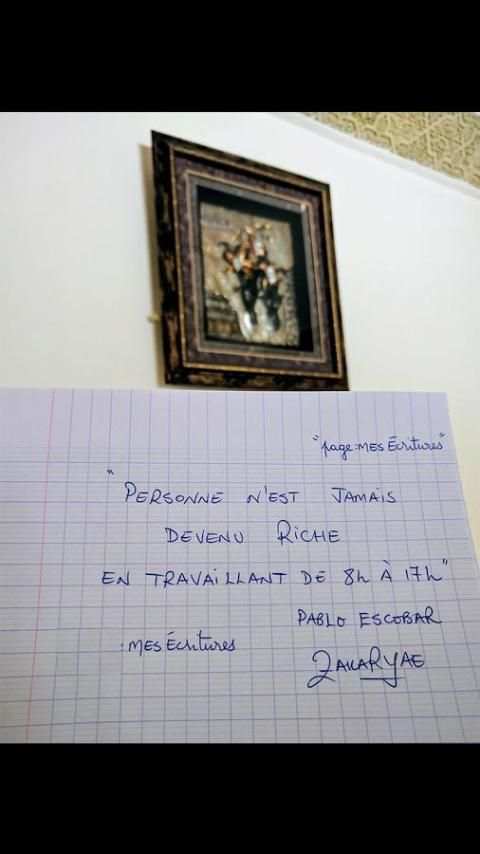 "page: MES Écritures"
" PERSONNE N'EST JAMAIS
DEVENU RICHE
EN TRAVAILLANT DE 8h À 17h"
PABLO ESCOBAR
: MES Écritures
ZAKARYAE